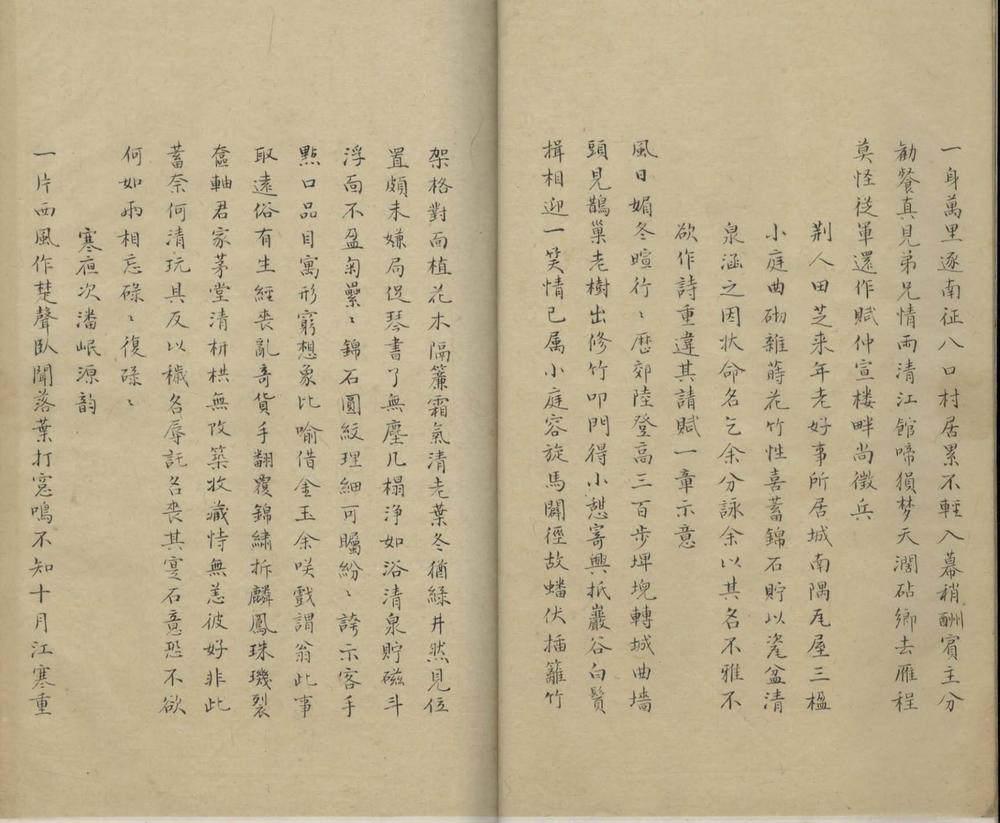 一身萬里逐南征八口村居累不輕入幕稍酬賓主分
勸餐真見弟兄情雨清江館啼猿梦天濶砧鄉去雁程
莫怪從軍還作賦仲宣楼畔尚徵兵
荆人田芝来年老好事所居城南隅瓦屋三楹
小庭曲砌雜蒔花竹性喜蓄錦石貯以瓷盆清
泉涵之因状命名乞余分詠余以其名不雅不
欲作詩重違其請賦一章示意
風日媚冬暄行〻歷郊陸登高三百步埤堄轉城曲墻
頭見鵲巢老樹出修竹叩門得小憩寄興抵巖谷白鬢
揖相迎一笑情已属小庭容旋馬闢徑故蟠伏插籬竹
架格對面植花木隔簾霜氣清老葉冬猶綠井然見位
置頗未嫌局促琴書了無塵几榻浄如浴清泉貯磁斗
浮面不盈匊纍〻錦石圓紋理細可矚紛〻誇示客手
點口品目寓形窮想象比喻借金玉余咲戲謂翁此事
取遠俗有生經丧亂奇貨手翻覆錦繡拆麟鳳珠璣裂
奩軸君家茅堂清枅栱無改築收藏恃無恙彼好非此
蓄奈何清玩具反以穢名辱託名丧其寔石意恐不欲
何如兩相忘碌〻復碌〻
寒夜次潘岷源韵
一片西風作楚聲臥聞落葉打窓鳴不知十月江寒重